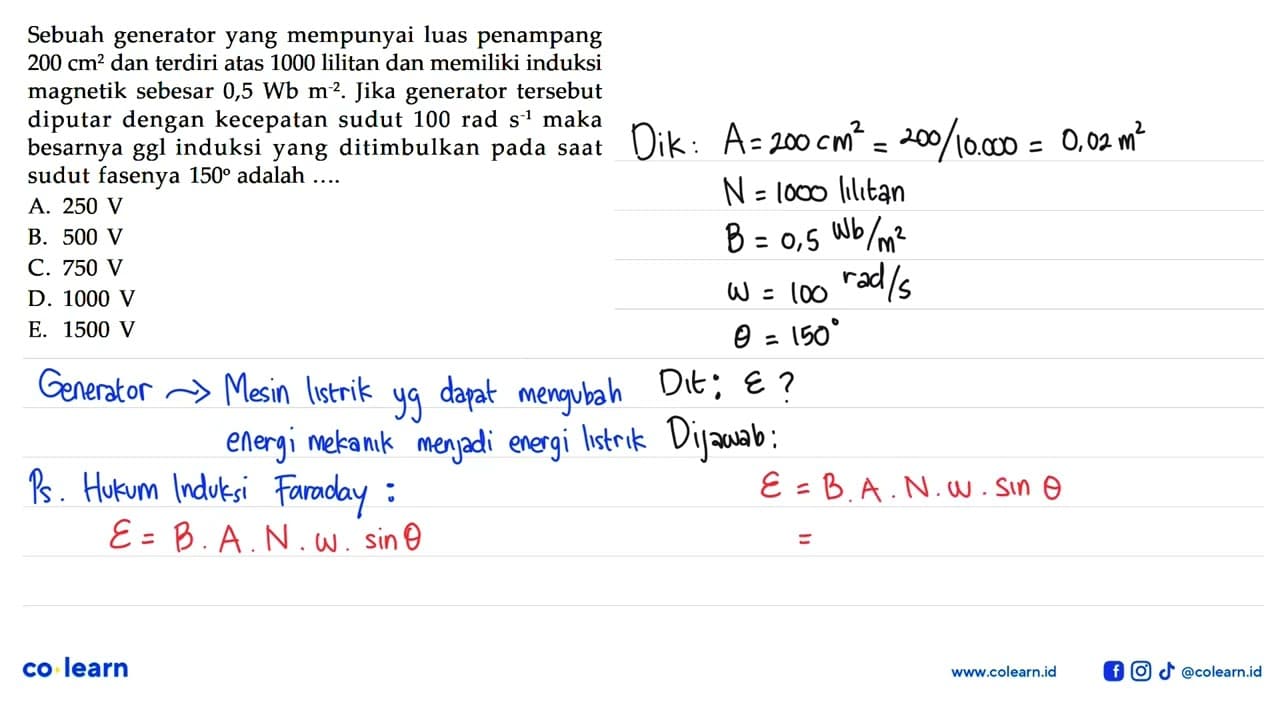 Sebuah generator yang mempunyai luas penampang
200 cm² dan terdiri atas 1000 lilitan dan memiliki induksi
magnetik sebesar 0,5 Wb m⁻². Jika generator tersebut
diputar dengan kecepatan sudut 100 rad s⁻¹ maka
besarnya ggl induksi yang ditimbulkan pada saat
sudut fasenya 150° adalah ....
A. 250 V
B. 500 V
C. 750 V
D. 1000 V
E. 1500 V
Dik: A = 200 cm² = 200/10.000 = 0,02 m²
N = 1000 lilitan
B = 0,5 Wb/m²
ω = 100 rad/s
θ = 150°
Generator → Mesin listrik yg dapat mengubah
energi mekanik menjadi energi listrik
Ps. Hukum Induksi Faraday :
ε = B . A . N . ω . sin θ
Dit: ε ?
Dijawab:
ε = B . A . N . ω . sin θ
=
co learn
www.colearn.id
@colearn.id